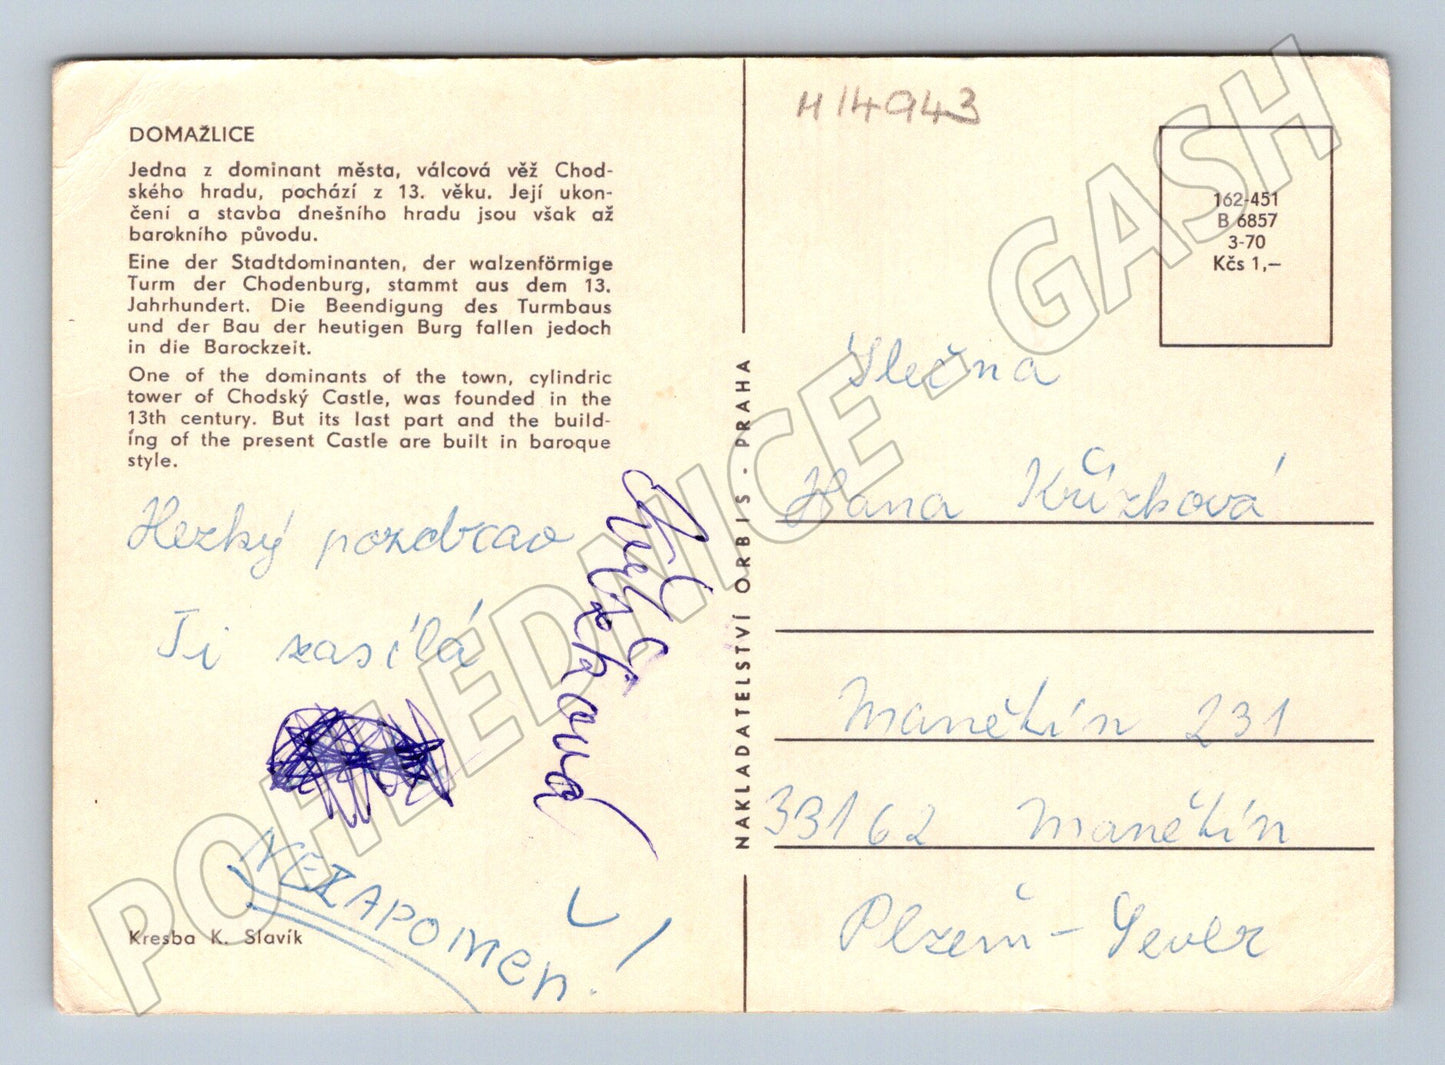 DOMAŽLICE
Jedna z dominant města, válcová věž Chod-
ského hradu, pochází z 13. věku. Její ukon-
čení a stavba dnešního hradu jsou však až
barokního původu.
Eine der Stadtdominanten, der walzenförmige
Turm der Chodenburg, stammt aus dem 13.
Jahrhundert. Die Beendigung des Turmbaus
und der Bau der heutigen Burg fallen jedoch
in die Barockzeit.
One of the dominants of the town, cylindric
tower of Chodský Castle, was founded in the
13th century. But its last part and the build-
ing of the present Castle are built in baroque
style.
Hezký pozdrav
Ti zasílá
Křížková
NEZAPOMEŇ!
Kresba K. Slavík
NAKLADATELSTVÍ ORBIS · PRAHA
H 14943
162-451
B 6857
3-70
Kčs 1,—
Slečna
Hana Křížková
Manětín 231
33162 Manětín
Plzeň - Sever
POHLEDNICE - GASH